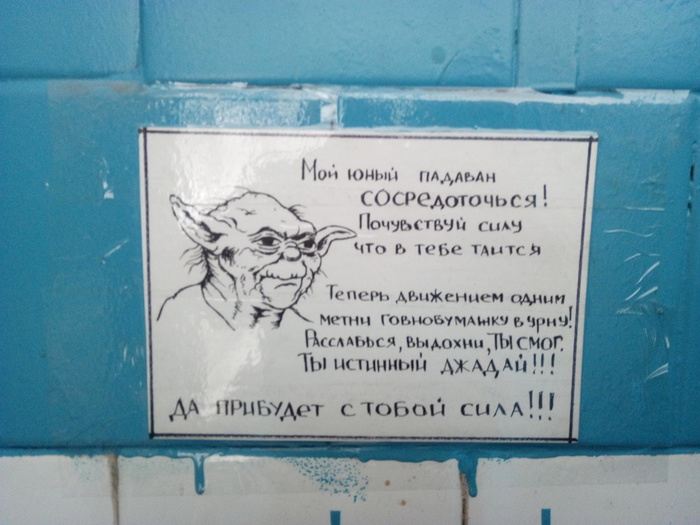 Мой юный падаван
сосредоточься!
Почувствуй силу
что в тебе таится
Теперь движением одним
метни говнобумажку в урну!
Расслабься, выдохни, ты смог.
Ты истинный джадай!!!
Да прибудет с тобой сила!!!